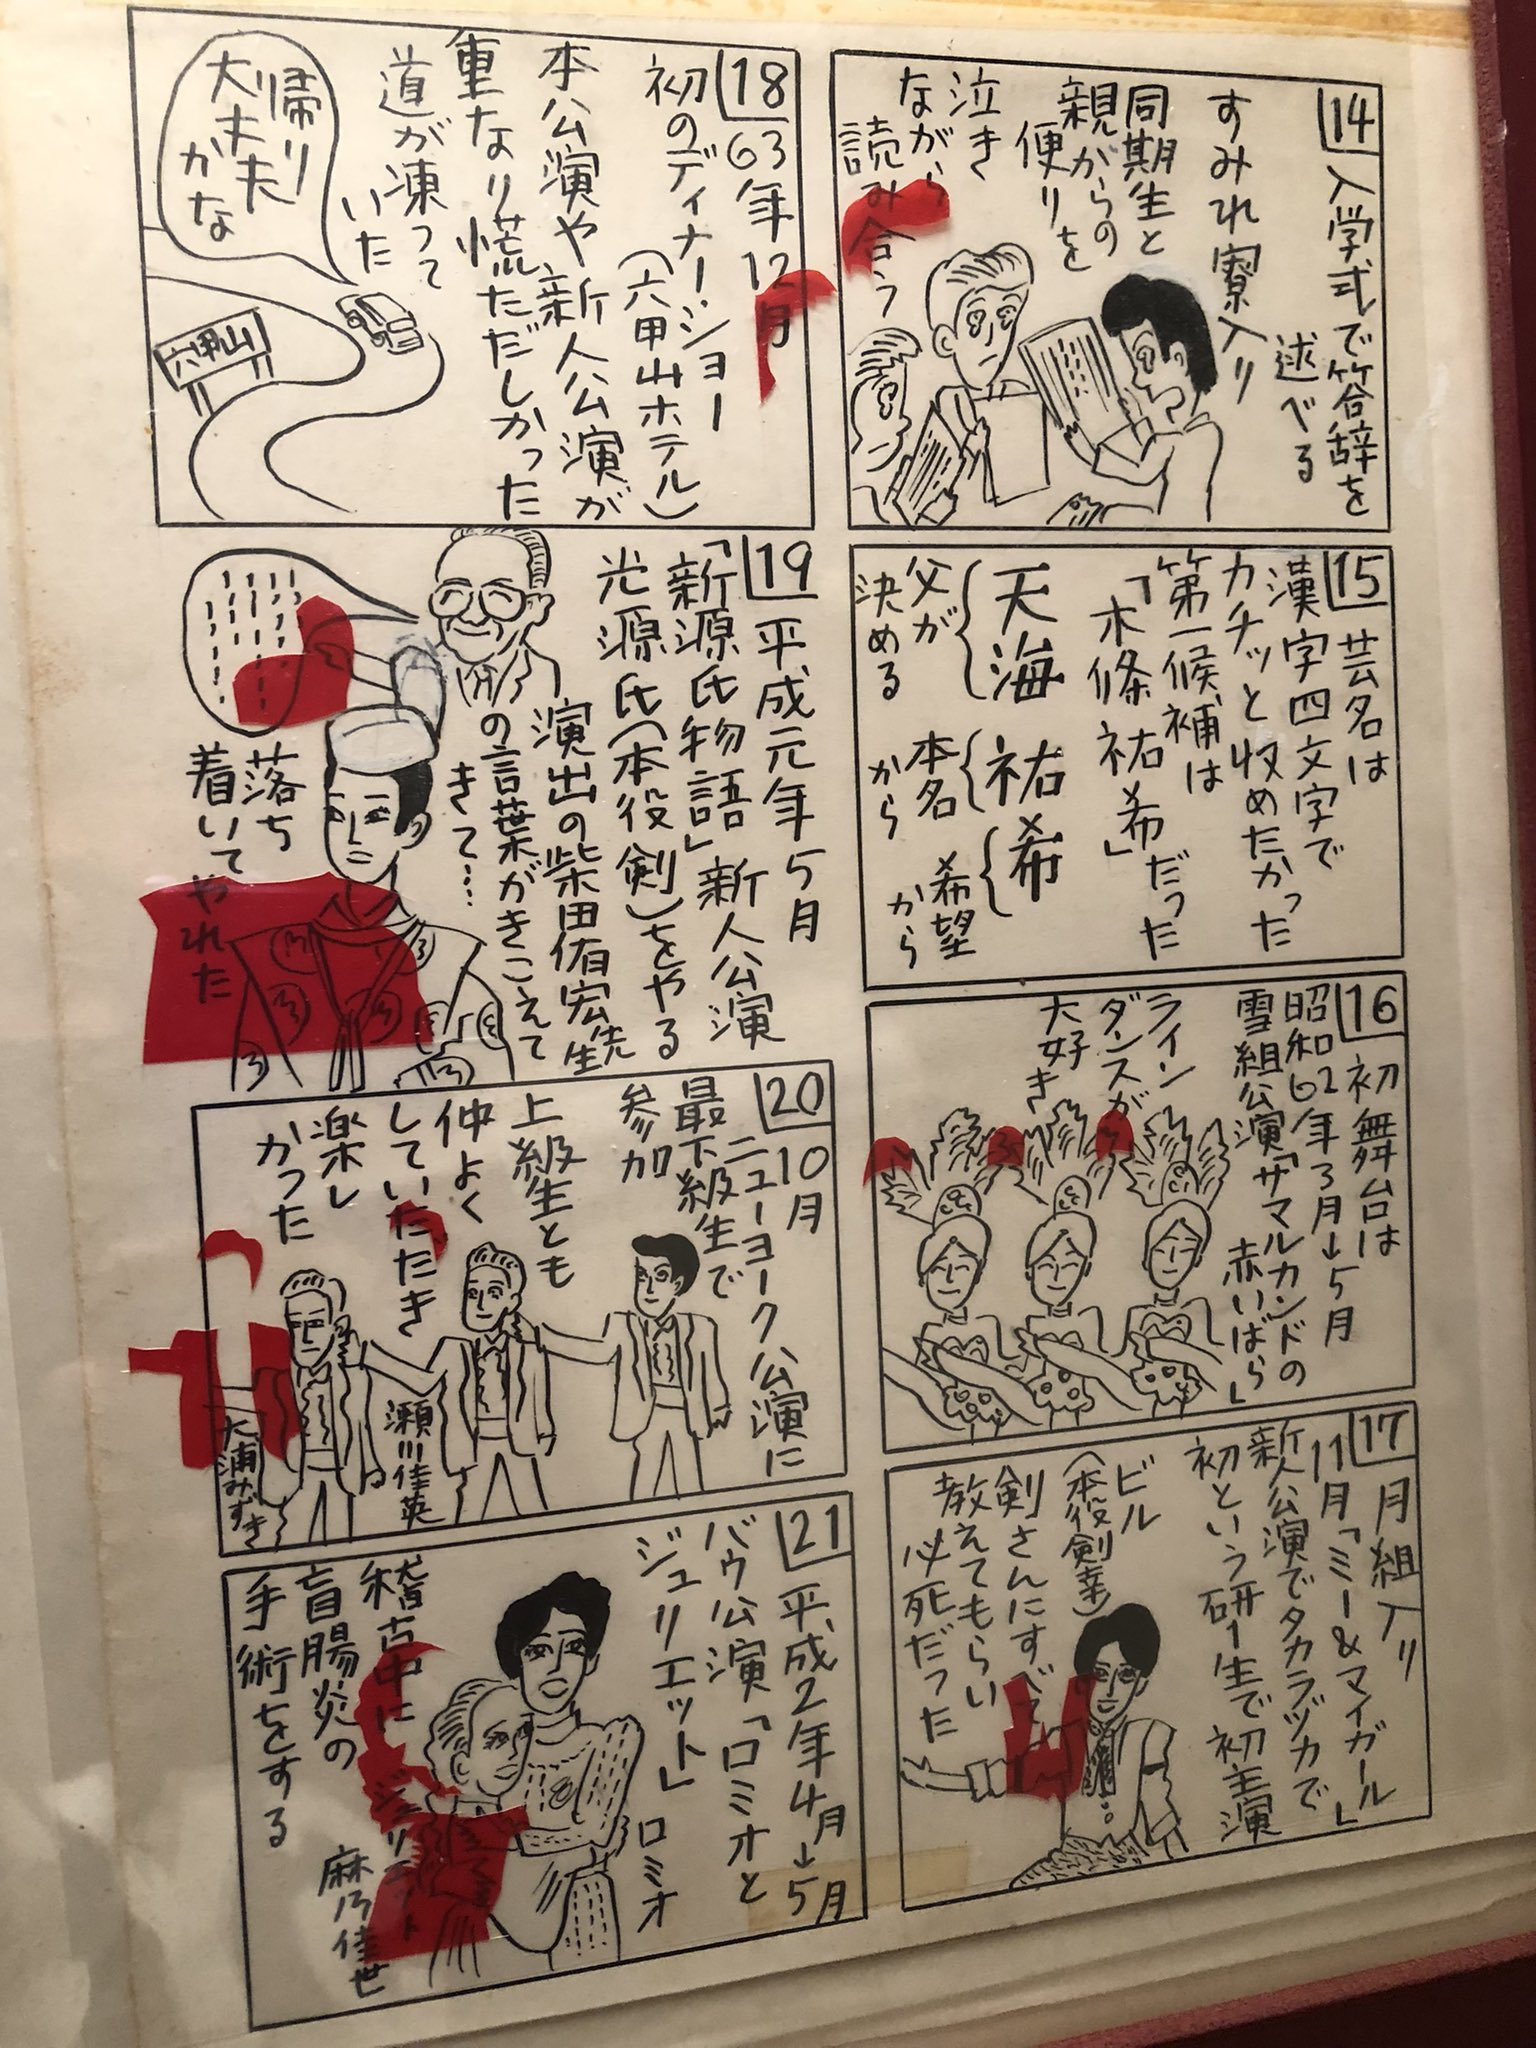 14
入学式で答辞を
述べる
すみれ寮入り
同期生と
親からの
便りを
泣き
ながら
読み合う
15
芸名は
漢字四文字で
カチッと収めたかった
第一候補は
「木條祐希」だった
天海
祐
希
父が
決める
本名
から
希望
から
16
初舞台は
昭和62年3月→5月
雪組公演「サマルカンドの
赤いばら」
ライン
ダンスが
大好き
17
月組入り
11月「ミー&マイガール」
新人公演でタカラヅカで
初という研1生で初主演
ビル
(本役剣幸)
剣さんにすべて
教えてもらい
必死だった
18
63年12月
初のディナー・ショー
(六甲山ホテル)
本公演や新人公演が
重なり慌ただしかった
道が凍って
いた
帰り
大丈夫
かな
六甲山
19
平成元年5月
「新源氏物語」新人公演
光源氏(本役剣)をやる
演出の柴田侑宏先生
の言葉がきこえて
きて…
落ち
着いてやれた
20
10月
ニューヨーク公演に
最下級生で
参加
上級生とも
仲よく
していただき
楽し
かった
瀬川佳英
大浦みずき
21
平成2年4月→5月
バウ公演「ロミオと
ジュリエット」ロミオ
稽古中に
盲腸炎の
手術をする
ジュリエット
麻乃佳世